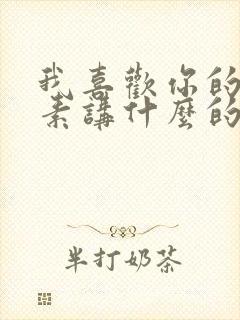 我喜歡你的
素講什麼的
半打奶茶